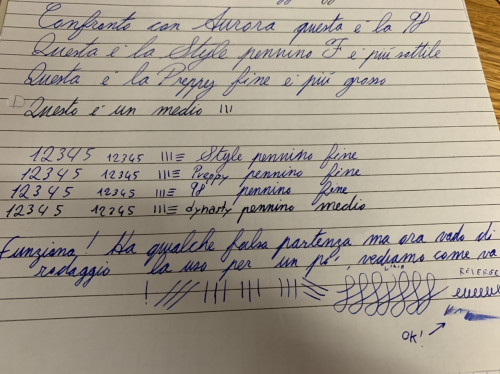 Confronto con Aurora questa è la 98
Questa è la Style pennino F è più sottile
Questa è la Preppy fine è più grosso
Questo è un medio !!!
12345 12345 |||≡ Style pennino fine
12345 12345 |||≡ Preppy pennino fine
12345 12345 |||≡ 98 pennino fine
12345 12345 |||≡ dynasty pennino medio
Funziona! Ha qualche falsa partenza ma ora vado di
rodaggio la uso per un po', vediamo come va
REVERSE
OK!